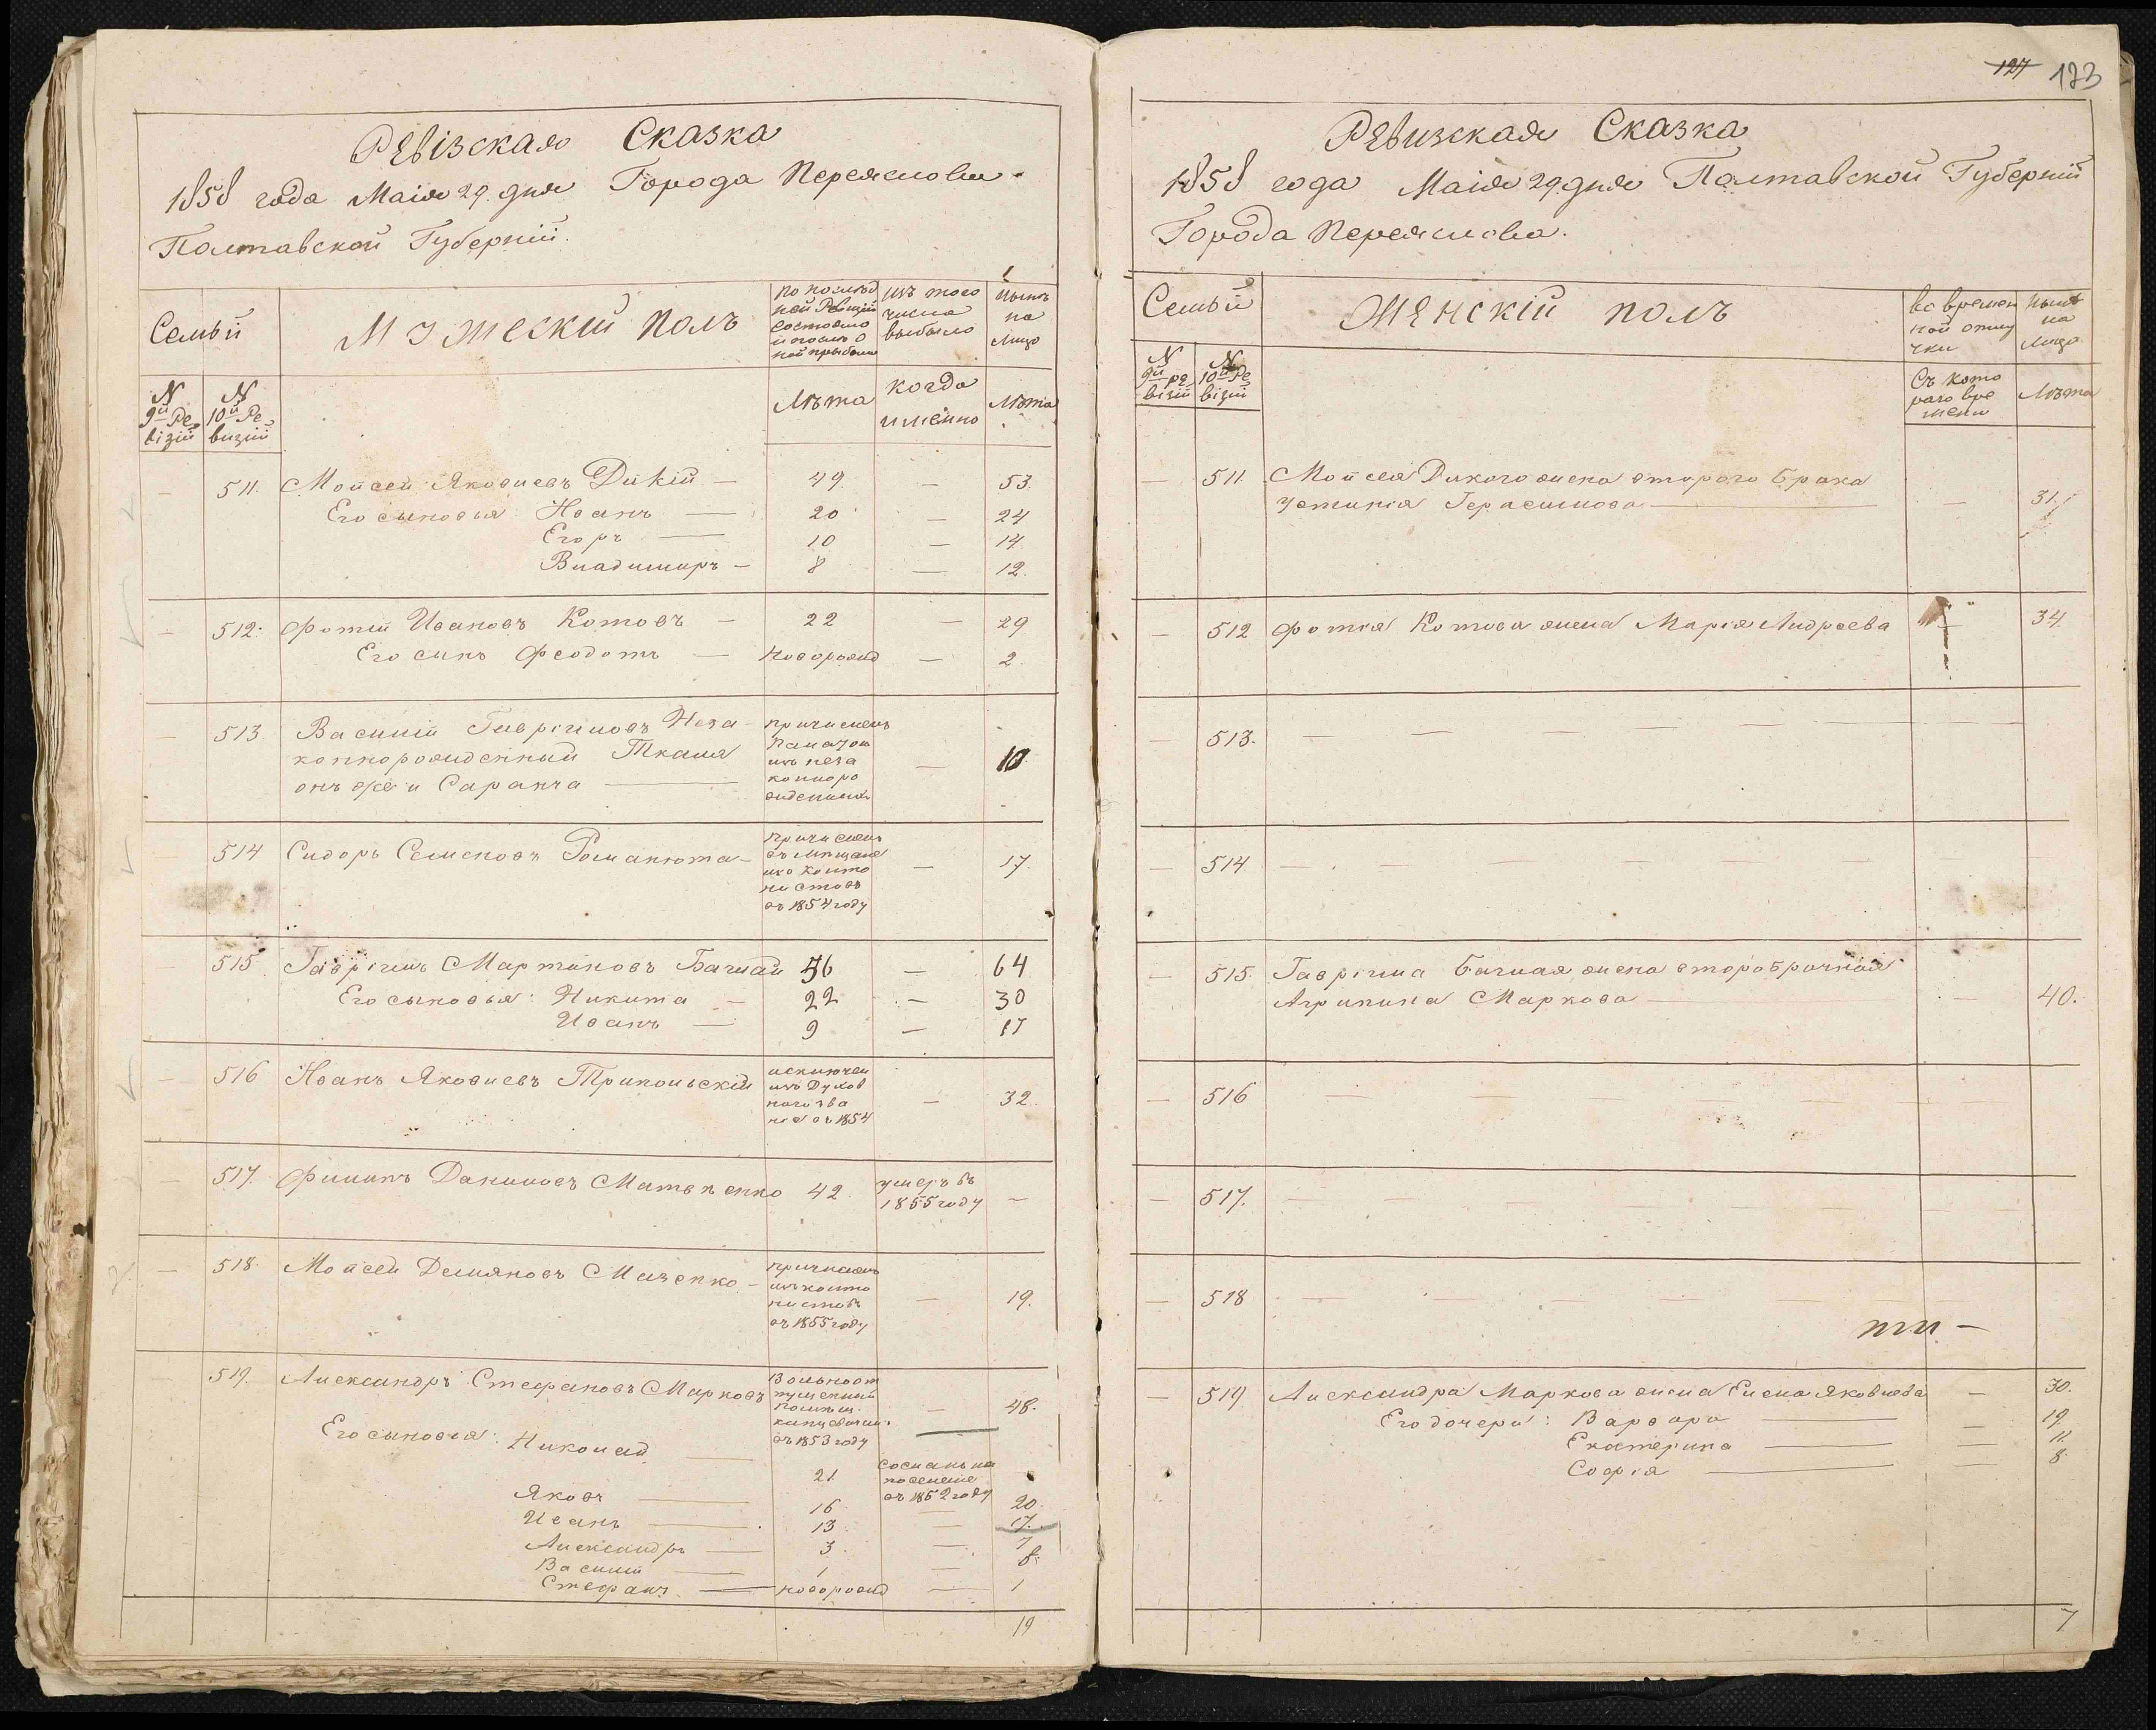 Ревізская Сказка
1858 года Маія 29. дня Города Переяслова
Полтавской Губерніи.
Семьи
Мужеский полъ
по послѣд
ней Ревизіи
состояло
и послѣ о
ной прибыло
изъ того
числа
выбыло
нынѣ
на
лицо
N
9й Ре
візіи
N
10й Ре
визіи
Лѣта
когда
имѣнно
Лѣта
— 511. Мойсей Яковлевъ Дикій — 49 — 53.
Его сыновья Иванъ — 20 — 24
Егоръ — 10 — 14
Владимиръ — 8 — 12.
— 512. Фотий Ивановъ Котовъ — 22 — 29
Его сынъ Феодотъ — новорожд — 2.
— 513. Василий Гавріиловъ Неза
коннорожденный Ткаля
онъ же и Саранча —
причисленъ
изъ неза
конноро
жденныхъ
— 10
514 Сидоръ Семеновъ Романюта —
причисленъ
въ мѣщане
изъ канто
нистовъ
въ 1854 году
— 17.
— 515 Гавріилъ Мартиновъ Бачлай 56 — 64
Его сыновья: Никита — 22 — 30
Иванъ — 9 — 17
— 516 Иванъ Яковлевъ Трипольскій
исключен
изъ Духов
ного зва
нія въ 1854
— 32.
— 517. Филипъ Даниловъ Матвѣенко 42.
умеръ въ
1855 году
—
— 518. Мойсей Демяновъ Мазепко —
причисленъ
изъ канто
нистовъ
въ 1855 году
— 19.
519. Александръ Стефановъ Марковъ
Вольноот
пущенный
въ 1853 году
— 48.
Его сыновья: Николай — 21.
сосланъ на
поселеніе
въ 1852 году
Яковъ — 16 — 20.
Иванъ — 13. — 17.
Александръ — 3. — 7
Василий — 1 — 8.
Стефанъ — новорожд — 1
19
127 133
Ревизская Сказка
1858 года Маія 29 дня Полтавской Губерніи
Города Переяслова.
Семьи
Женскій полъ
во времен
ной отлу
чки
нынѣ
на
лицо
N
9й ре
візіи
N
10й Ре
візіи
Съ кото
раго вре
мени
Лѣта
— 511. Мойсея Дикого жена второго брака
Устинія Герасимова — — 31.
— 512 Фотія Котова жена Марія Андреева — 34.
— 513. — — — — — —
— 514. — — — — — —
— 515. Гавріила Бачлая жена второбрачная
Агрипина Маркова — — 40.
— 516 — — — — — —
— 517. — — — — — —
— 518 — — — — — —
— 519 Александра Маркова жена Елена Яковлева — 30.
Его дочери: Варвара — — 19.
Екатерина — — 11.
Софія — — 8.
7